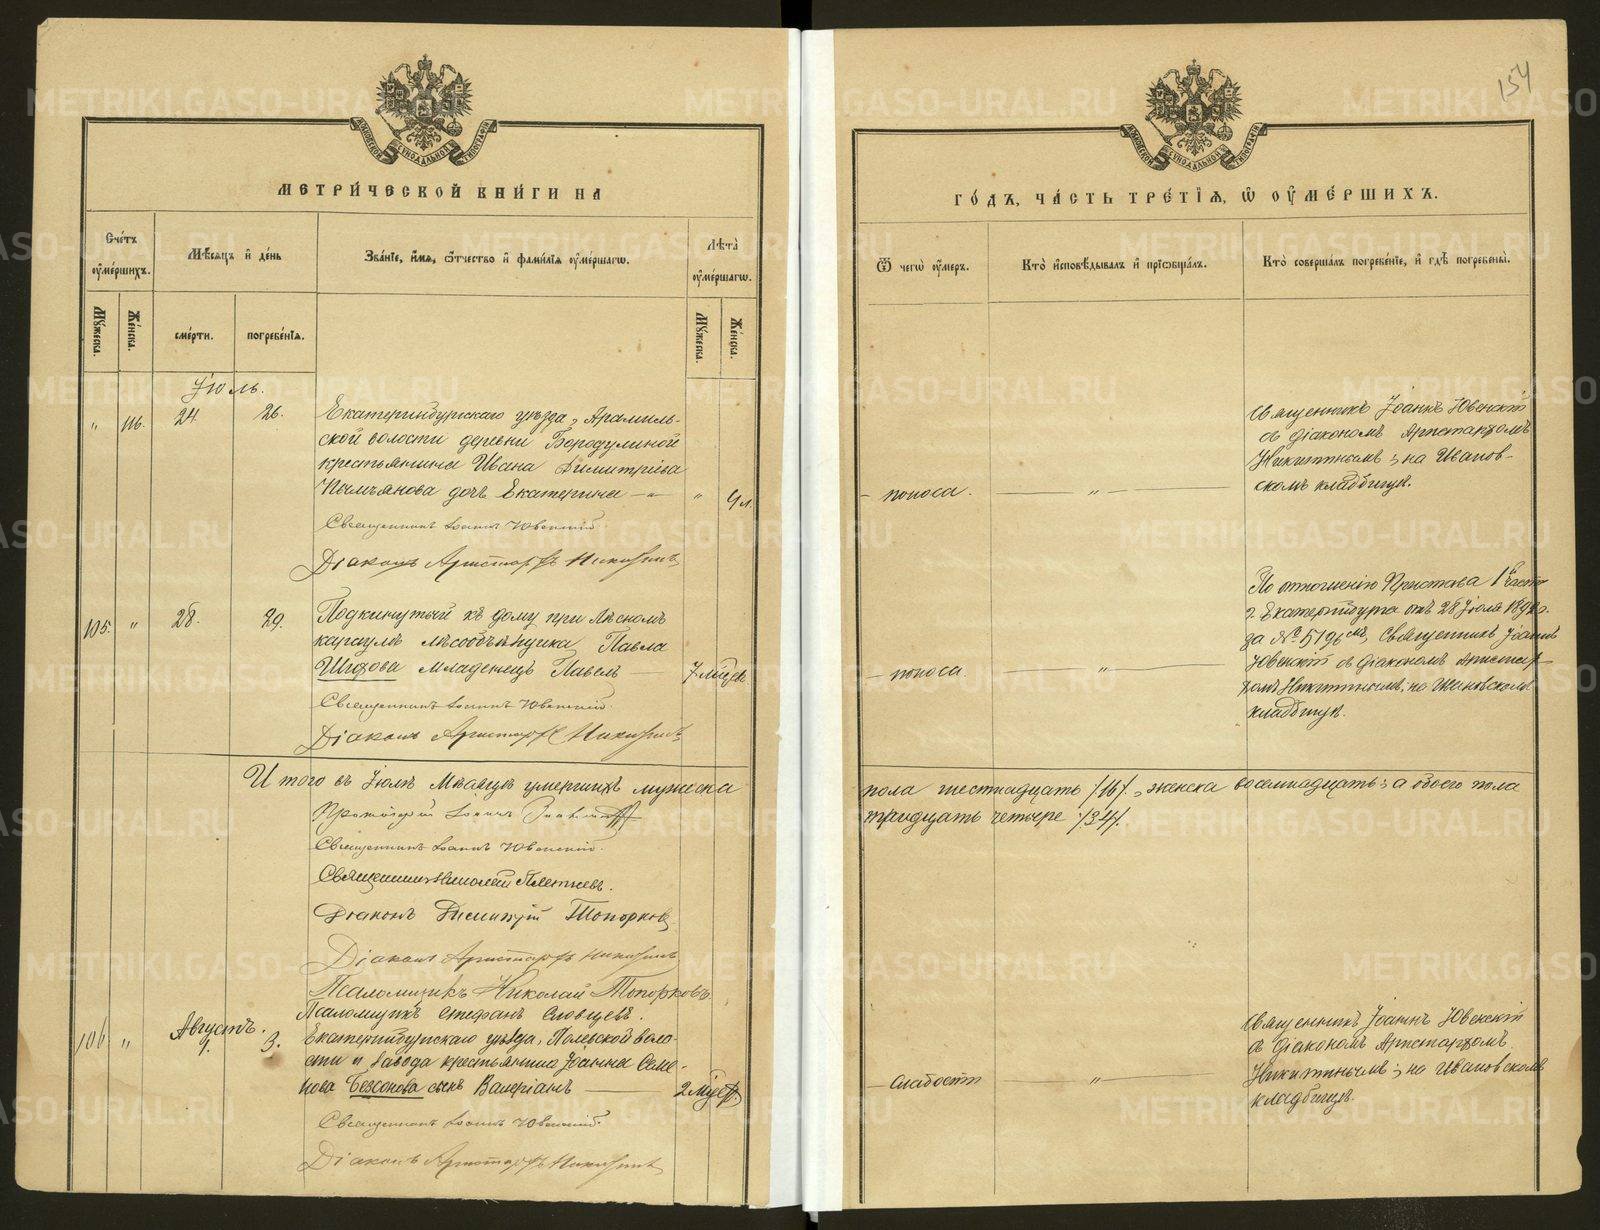 154
МЕТРИ́ЧЕСКОЙ КНИ́ГИ НА
Сче́тъ оу҆ме́ршихъ.
Мѣ́сяцъ и҆ де́нь
Зва́нїе, и҆́мя, ѻ҆́тчество и҆ фами́лїя оу҆ме́ршагѡ.
Лѣ́та оу҆ме́ршагѡ.
Мꙋ́жеска.
Же́нска.
сме́рти.
погребе́нїя.
Мꙋ́жеска.
Же́нска.
Іюль.
„ 116. 24. 26. Екатеринбургскаго уѣзда, Арамиль-
ской волости деревни Бородулиной
крестьянина Ивана Димитріева
дочь Екатерина — „ „ 4 л.
Священникъ Іоаннъ Ювенскій
Діаконъ Аристархъ Никитинъ
105. „ 28. 29. Подкинутый къ дому при Лѣсномъ
караулѣ лѣсообъѣздчика Павла
младенецъ Павелъ — 7 мѣсц.
Священникъ Іоаннъ Ювенскій.
Діаконъ Аристархъ Никитинъ
Итого въ Іюлѣ Мѣсяцѣ умершихъ мужеска
Протоіерей Іоаннъ
Священникъ Іоаннъ Ювенскій.
Священникъ Николай Плетневъ.
Діаконъ Димитрій Топорковъ
Діаконъ Аристархъ Никитинъ
Псаломщикъ Николай Топорковъ.
Псаломщикъ Стефанъ Словцевъ.
Августъ.
106 „ 1. 3. Екатеринбургскаго уѣзда, Полевской воло-
сти и завода крестьянина Іоанна Семе-
нова Безсонова сынъ Валеріанъ — 2 мѣс.
Священникъ Іоаннъ Ювенскій.
Діаконъ Аристархъ Никитинъ
ГО́ДЪ, ЧА́СТЬ ТРЕ́ТЇЯ, Ѡ҆ ОУ҆МЕ́РШИХЪ.
Ѿ чегѡ̀ оу҆́меръ.
Кто̀ и҆сповѣ́дывалъ и҆ прїѡбща́лъ.
Кто̀ соверша́лъ погребе́нїе, и҆ гдѣ̀ погребены̀.
Священникъ Іоаннъ Ювенскій
съ діакономъ Аристархомъ
Никитинымъ; на Иванов-
скомъ кладбищѣ.
— поноса. — „ —
По отношенію Пристава 1й части
г. Екатеринбурга отъ 28 Іюля 189 г.
за № 5196 мъ, Священникъ Іоаннъ
Ювенскій съ діакономъ Аристар-
хомъ Никитинымъ; на Ивановскомъ
кладбищѣ.
— поноса — „ —
пола шестнадцать /16/, женска восемнадцать; а обоего пола
тридцать четыре /34/.
Священникъ Іоаннъ Ювенскій
съ діакономъ Аристархомъ
Никитинымъ; на Ивановскомъ
кладбищѣ.
— слабости — „ —
METRIKI.GASO-URAL.RU